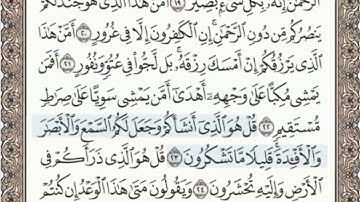 الرَّحْمَٰنُ إِنَّهُ بِكُلِّ شَيْءٍ بَصِيرٌ ١٩ أَمَّنْ هَٰذَا الَّذِي هُوَ جُندٌ لَّكُمْ
يَنصُرُكُم مِّن دُونِ الرَّحْمَٰنِ إِنِ الْكَافِرُونَ إِلَّا فِي غُرُورٍ ٢٠ أَمَّنْ هَٰذَا
الَّذِي يَرْزُقُكُمْ إِنْ أَمْسَكَ رِزْقَهُ بَل لَّجُّوا فِي عُتُوٍّ وَنُفُورٍ ٢١ أَفَمَن
يَمْشِي مُكِبًّا عَلَىٰ وَجْهِهِ أَهْدَىٰ أَمَّن يَمْشِي سَوِيًّا عَلَىٰ صِرَاطٍ
مُّسْتَقِيمٍ ٢٢ قُلْ هُوَ الَّذِي أَنشَأَكُمْ وَجَعَلَ لَكُمُ السَّمْعَ وَالْأَبْصَارَ
وَالْأَفْئِدَةَ قَلِيلًا مَّا تَشْكُرُونَ ٢٣ قُلْ هُوَ الَّذِي ذَرَأَكُمْ فِي
الْأَرْضِ وَإِلَيْهِ تُحْشَرُونَ ٢٤ وَيَقُولُونَ مَتَىٰ هَٰذَا الْوَعْدُ إِن كُنتُمْ